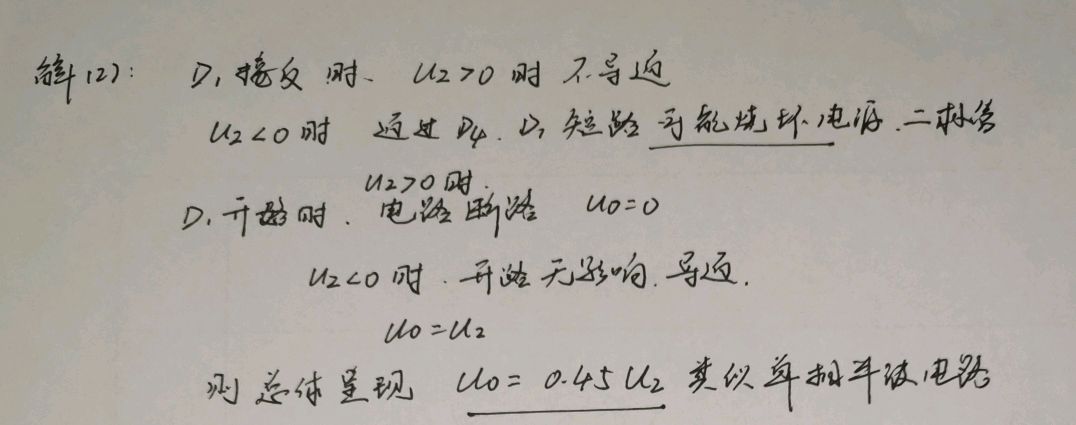 解(2): D₁接反时、 U₂>0时 不导通
U₂<0时 通过D₄、D₁短路 可能烧坏电源、二极管
U₂>0时.
D₁开路时、电路断路 U₀=0
U₂<0时、开路无影响、导通.
U₀=U₂
则总体呈现 U₀=0.45U₂ 类似单相半波电路